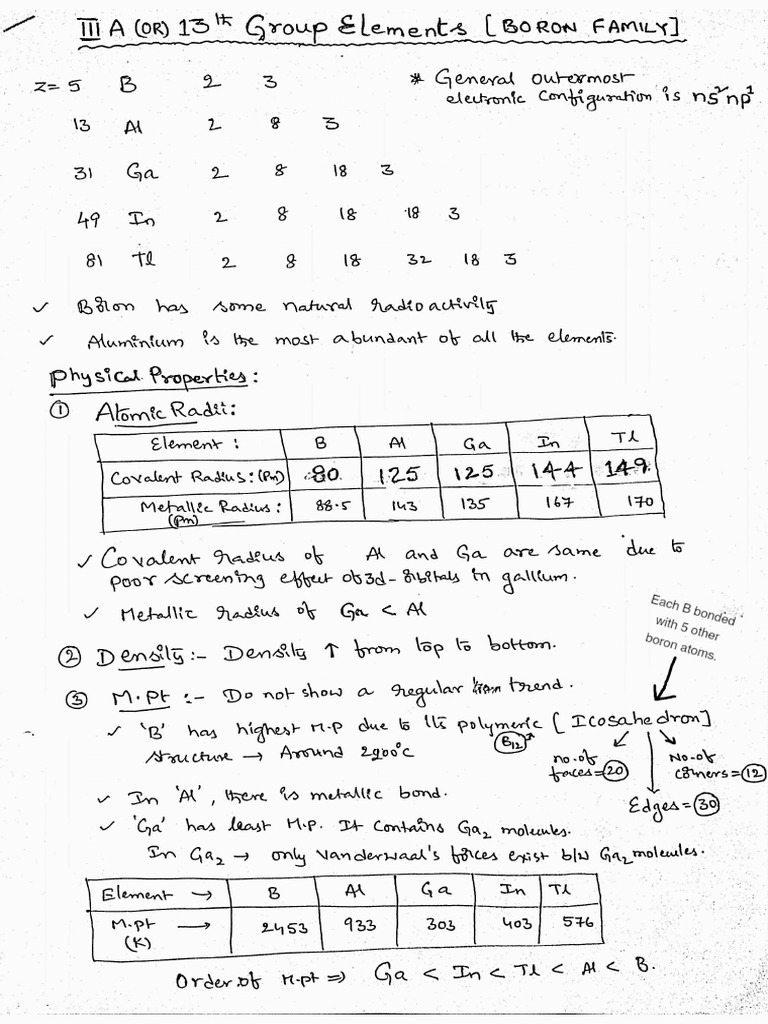 III A (OR) 13th Group Elements [BORON FAMILY]
Z= 5 B 2 3
* General outermost
electronic configuration is ns² np¹
13 Al 2 8 3
31 Ga 2 8 18 3
49 In 2 8 18 18 3
81 Tl 2 8 18 32 18 3
✓ Boron has some natural radioactivity
✓ Aluminium is the most abundant of all the elements.
Physical Properties:
① Atomic Radii:
Element: B Al Ga In Tl
Covalent Radius: (Pm) 80 125 125 144 149
Metallic Radius: (Pm) 88.5 143 135 167 170
✓ Covalent radius of Al and Ga are same due to
poor screening effect of 3d-orbitals in gallium.
✓ Metallic radius of Ga < Al
Each B bonded
with 5 other
boron atoms.
② Density:- Density ↑ from top to bottom.
③ M.Pt :- Do not show a regular trend.
✓ 'B' has highest M.P due to its polymeric [Icosahedron]
structure → Around 2200°C
B12
no.of
faces=20
No.of
corners=12
Edges=30
✓ In 'Al', there is metallic bond.
✓ 'Ga' has least M.P. It contains Ga2 molecules.
In Ga2 → only Vanderwaal's forces exist b/w Ga2 molecules.
Element → B Al Ga In Tl
M.pt → (K) 2453 933 303 403 576
Order of M.pt ⇒ Ga < In < Tl < Al < B.